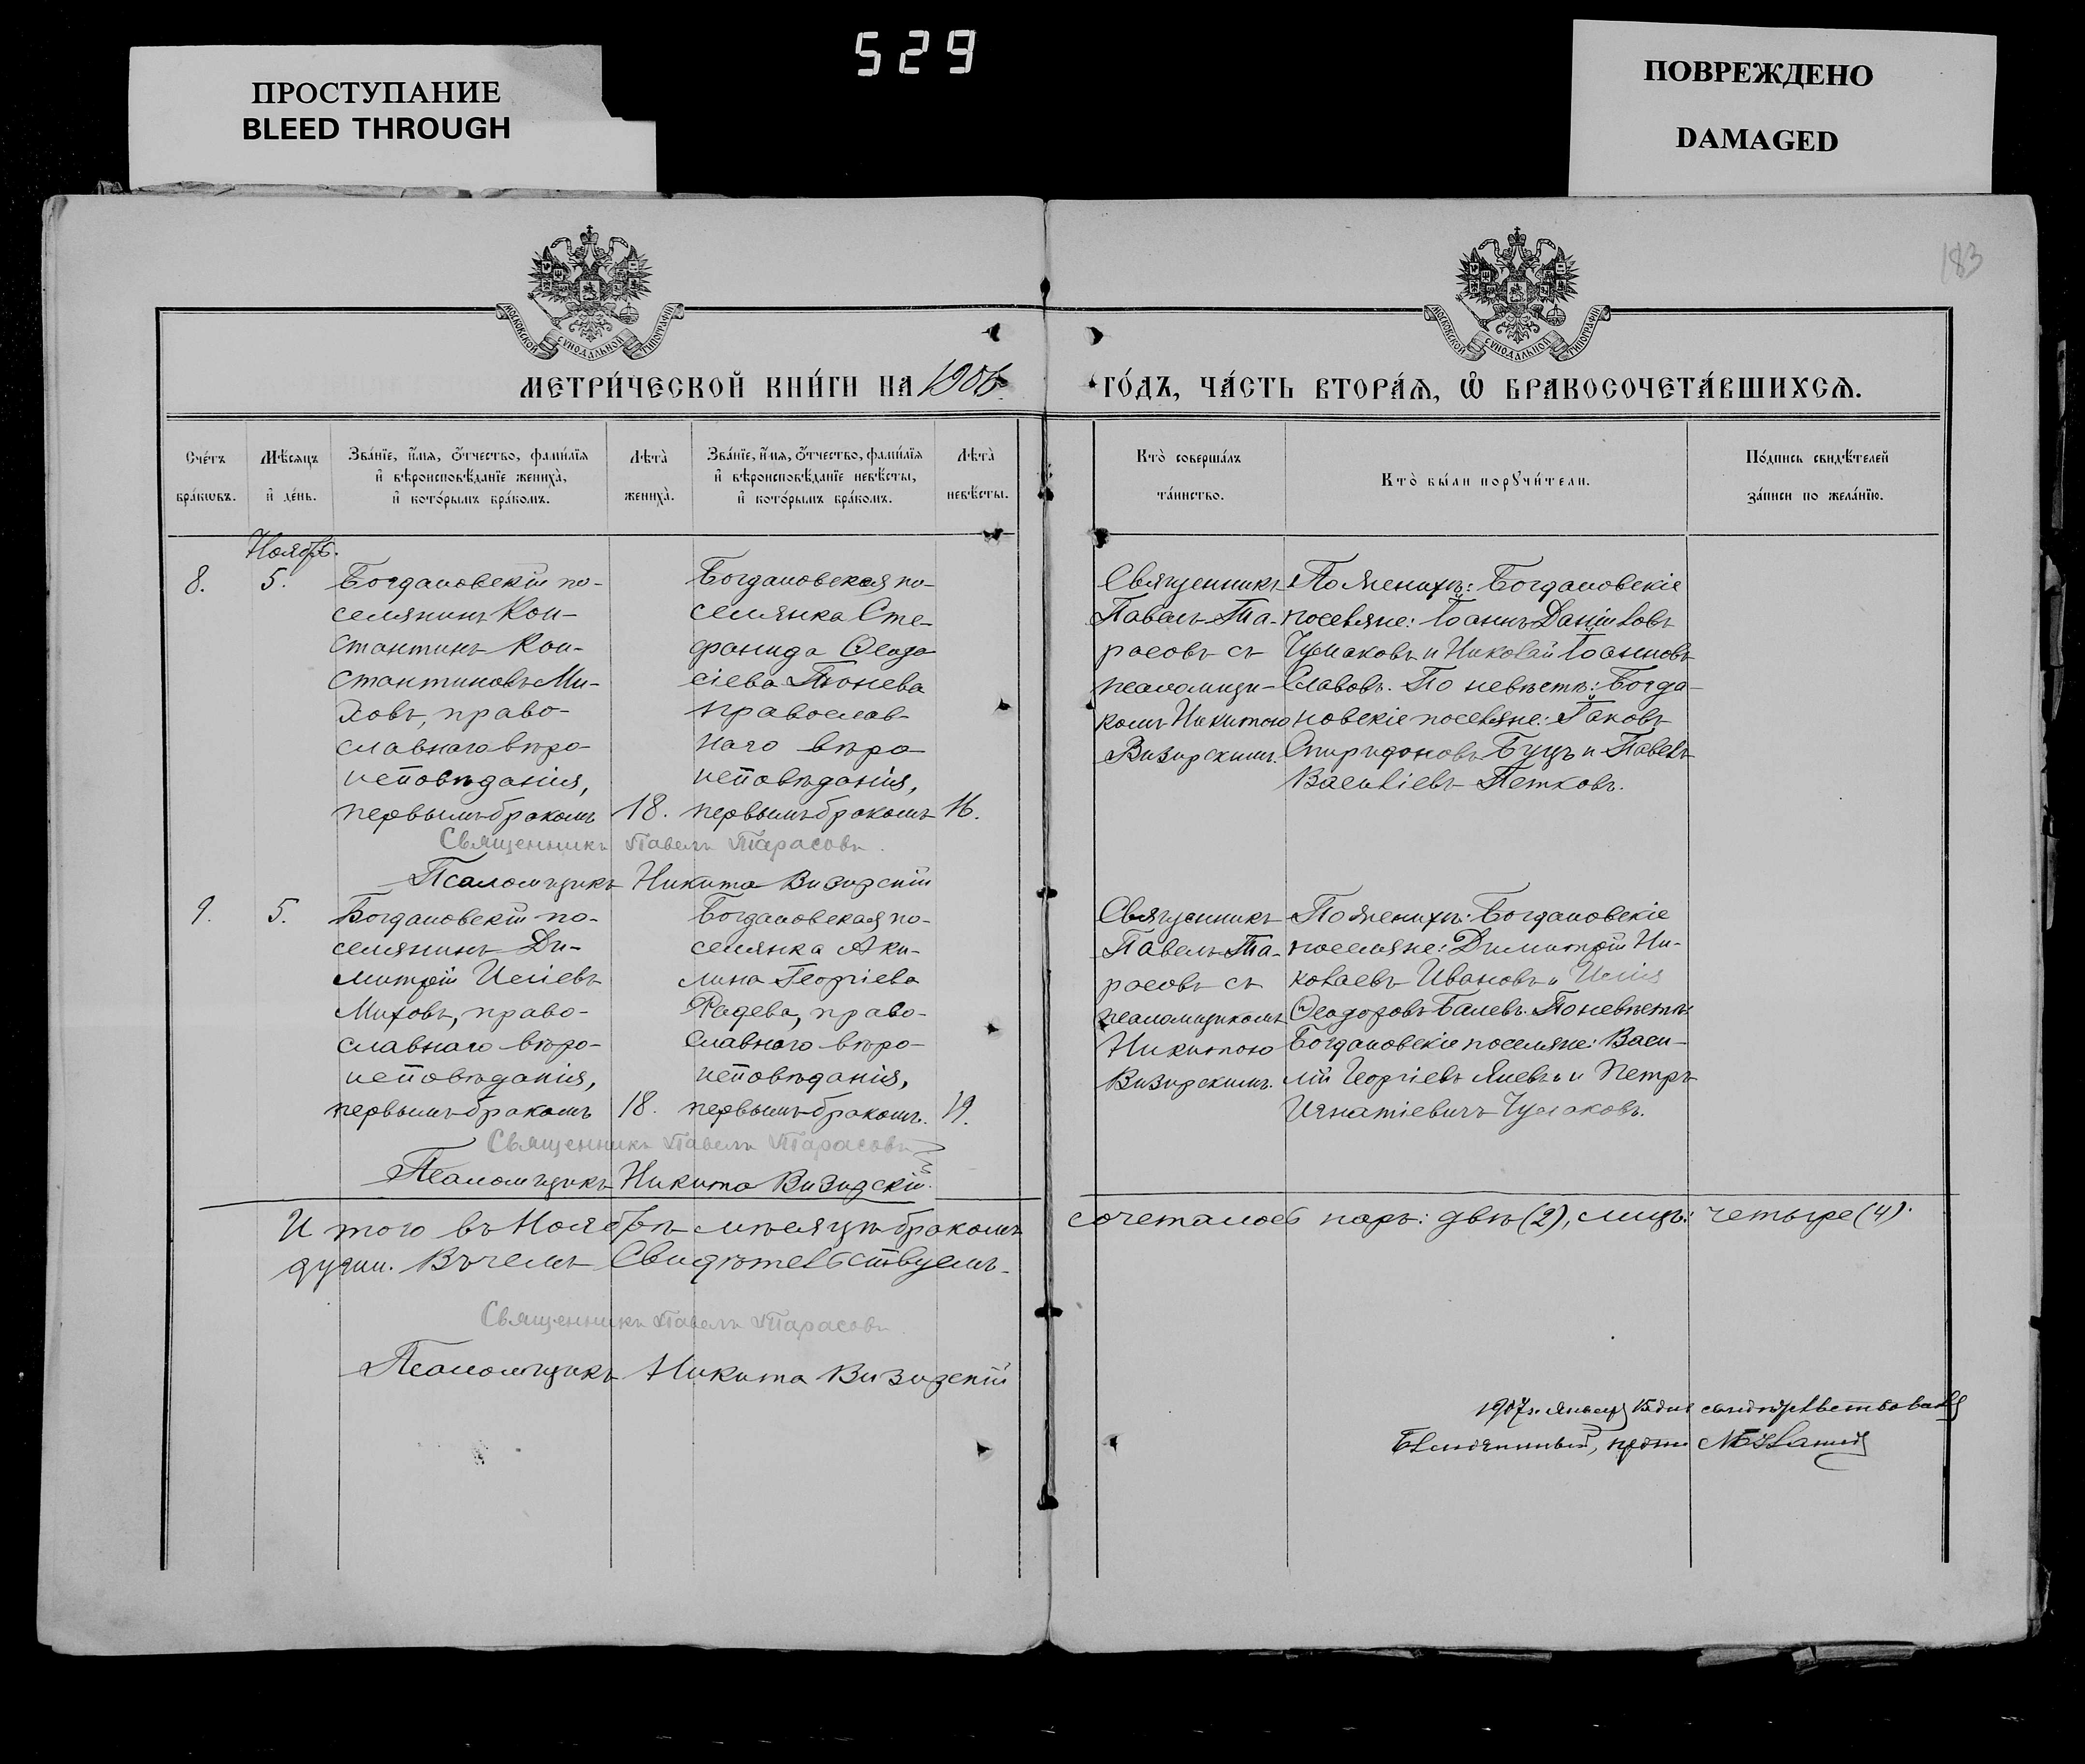 529
ПРОСТУПАНИЕ
BLEED THROUGH
ПОВРЕЖДЕНО
DAMAGED
183
МОСКОВСКОЙ СѴНОДАЛЬНОЙ ТИПОГРАФІИ
МОСКОВСКОЙ СѴНОДАЛЬНОЙ ТИПОГРАФІИ
МЕТРИ́ЧЕСКОЙ КНИ́ГИ НА 1906
ГО́ДЪ, ЧА́СТЬ ВТОРА́Ѧ, Ѽ БРАКОСОЧЕТА́ВШИХСѦ.
Сче́тъ
бра́кѡвъ.
Мѣ́сѧцъ
и҆ де́нь.
Зва́нїе, и҆́мѧ, ѻ҆́тчество, фами́лїѧ
и҆ вѣроисповѣ́данїе жениха̀,
и҆ кото́рымъ бра́комъ.
Лѣта̀
жениха̀.
Зва́нїе, и҆́мѧ, ѻ҆́тчество, фами́лїѧ
и҆ вѣроисповѣ́данїе невѣ́сты,
и҆ кото́рымъ бра́комъ.
Лѣта̀
невѣ́сты.
Кто̀ соверша́лъ
та́инство.
Кто̀ бы́ли порꙋчи́тели.
По́дпись свидѣ́телей
за́писи по жела́нїю.
Ноябрь.
8.
5.
Богдановскій по-
селянинъ Кон-
стантинъ Кон-
стантиновъ Ми-
ховъ, право-
славнаго вѣро-
исповѣданія,
первымъ бракомъ
18.
Богдановская по-
селянка Сте-
фанида Ѳеодо
сіева Тонева
православ-
наго вѣро
исповѣданія,
первымъ бракомъ
16.
Священникъ
Павелъ Та-
расовъ съ
псаломщи-
комъ Никитою
Визирскимъ.
По женихѣ: Богдановскіе
поселяне: Іоаннъ Даніиловъ
Чумаковъ и Николай Іоанновъ
Славовъ. По невѣстѣ: Богда-
новскіе поселяне: Іаковъ
Спиридоновъ Буцъ и Павелъ
Васильевъ Петковъ.
Священникъ Павелъ Тарасовъ.
Псаломщикъ Никита Визирскій
9.
5.
Богдановскій по-
селянинъ Ди-
митрій Иліевъ
Миховъ, право-
славнаго вѣро-
исповѣданія,
первымъ бракомъ
18.
Богдановская по-
селянка Аки-
лина Георгіева
Радева, право-
славнаго вѣро-
исповѣданія,
первымъ бракомъ.
19.
Священникъ
Павелъ Та-
расовъ съ
псаломщикомъ
Никитою
Визирскимъ.
По женихѣ: Богдановскіе
поселяне: Димитрій Ни-
колаевъ Ивановъ и Илія
Ѳеодоровъ Балевъ. По невѣстѣ:
Богдановскіе поселяне: Васи-
лій Георгіевъ Яневъ и Петръ
Игнатіевичъ Чумаковъ.
Священникъ Павелъ Тарасовъ
Псаломщикъ Никита Визирскій.
И того въ Ноябрѣ мѣсяцѣ бракомъ сочеталось паръ: двѣ (2), лицъ: четыре (4).
души. Въ чемъ Свидѣтельствуемъ.
Священникъ Павелъ Тарасовъ.
Псаломщикъ Никита Визирскій
1907 г. Января 15 дня свидѣтельствовалъ
Благочинный,